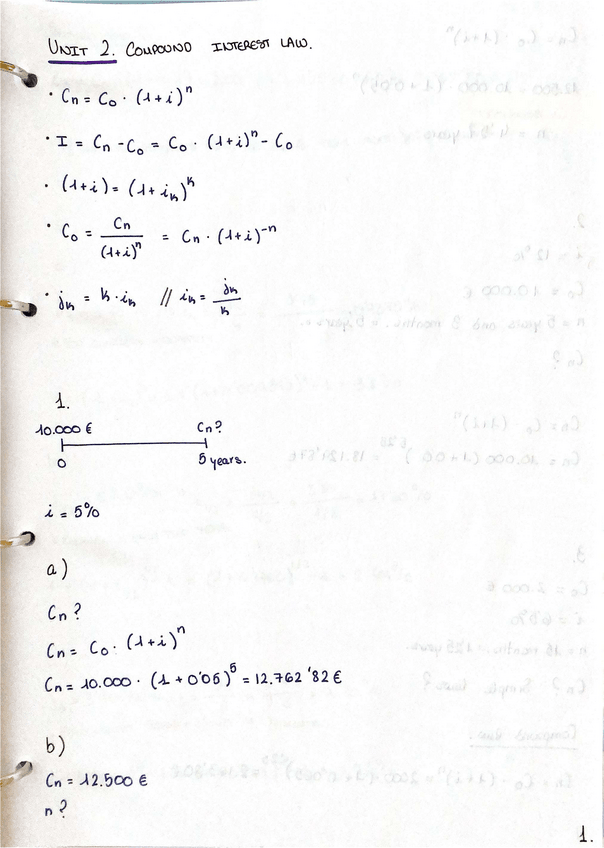 UNIT 2. COMPOUND INTEREST LAW.
· Cn = Co · (1+i)^n
· I = Cn - Co = Co · (1+i)^n - Co
· (1+i) = (1+i_k)^k
· Co = Cn/(1+i)^n = Cn · (1+i)^-n
· j_k = k · i_k // i_k = j_k/k
1.
10.000 € Cn?
0 5 years.
i = 5%
a)
Cn?
Cn = Co · (1+i)^n
Cn = 10.000 · (1 + 0'05)^5 = 12.762'82 €
b)
Cn = 12.500 €
n?
1.